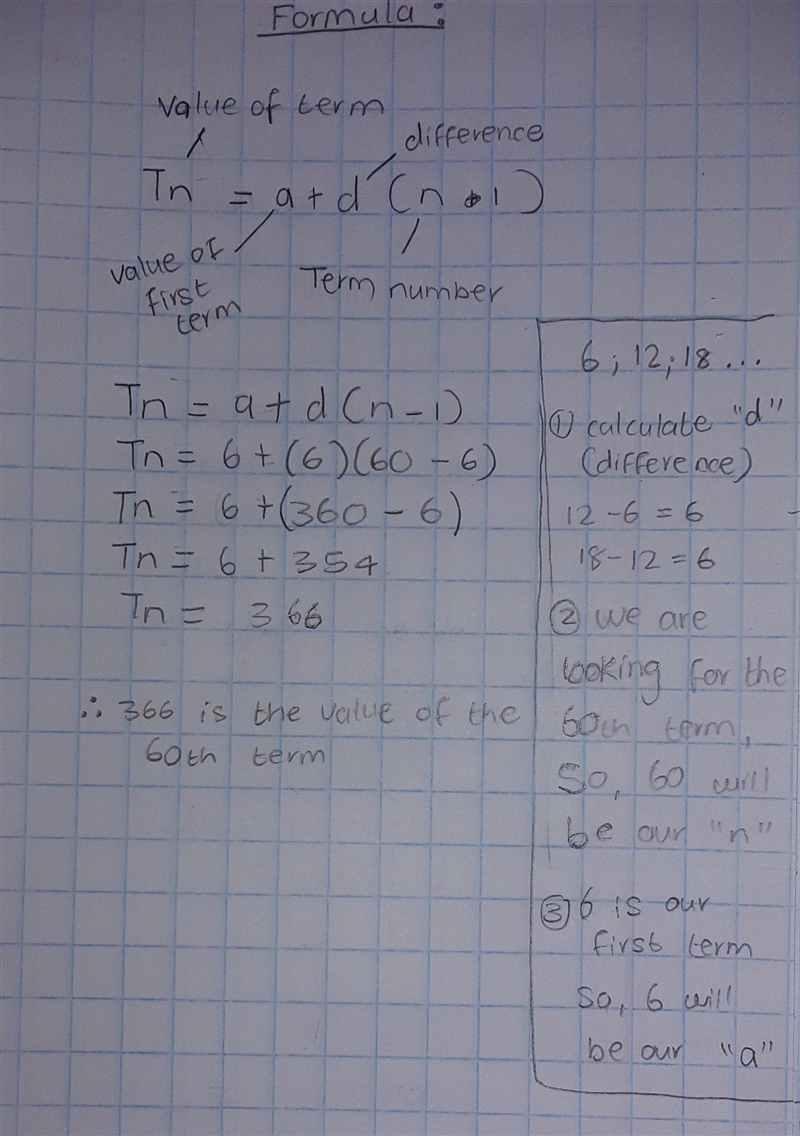 Formula:
value of term
difference
Tn = a + d (n - 1)
value of
first
term
Term number
Tn = a + d (n - 1)
Tn = 6 + (6)(60 - 6)
Tn = 6 + (360 - 6)
Tn = 6 + 354
Tn = 366
∴ 366 is the value of the
60th term
6 ; 12 ; 18 ...
① calculate "d"
(difference)
12 - 6 = 6
18 - 12 = 6
② we are
looking for the
60th term,
So, 60 will
be our "n"
③ 6 is our
first term
so, 6 will
be our "a"